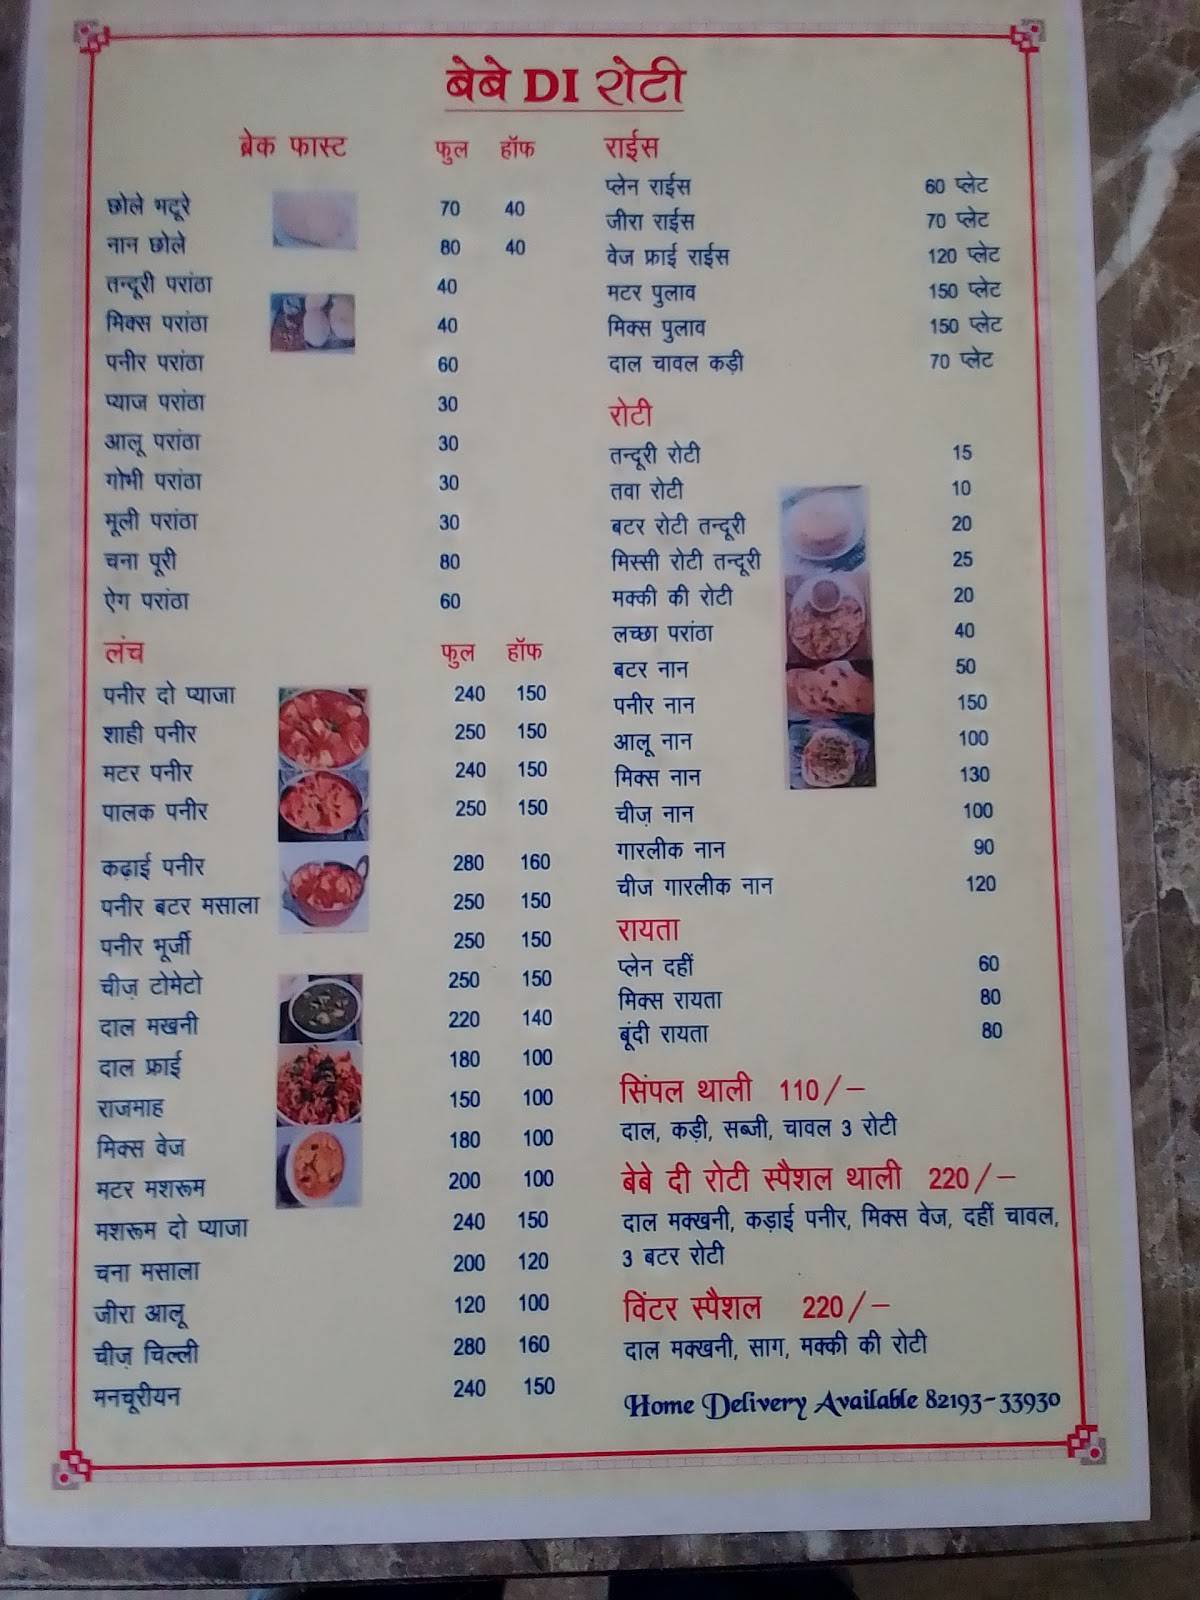 बेबे DI रोटी
ब्रेक फास्ट फुल हॉफ
छोले भटूरे 70 40
नान छोले 80 40
तन्दूरी परांठा 40
मिक्स परांठा 40
पनीर परांठा 60
प्याज परांठा 30
आलू परांठा 30
गोभी परांठा 30
मूली परांठा 30
चना पूरी 80
ऐग परांठा 60
लंच फुल हॉफ
पनीर दो प्याजा 240 150
शाही पनीर 250 150
मटर पनीर 240 150
पालक पनीर 250 150
कढ़ाई पनीर 280 160
पनीर बटर मसाला 250 150
पनीर भूर्जी 250 150
चीज़ टोमेटो 250 150
दाल मखनी 220 140
दाल फ्राई 180 100
राजमाह 150 100
मिक्स वेज 180 100
मटर मशरूम 200 100
मशरूम दो प्याजा 240 150
चना मसाला 200 120
जीरा आलू 120 100
चीज़ चिल्ली 280 160
मनचूरीयन 240 150
राईस
प्लेन राईस 60 प्लेट
जीरा राईस 70 प्लेट
वेज फ्राई राईस 120 प्लेट
मटर पुलाव 150 प्लेट
मिक्स पुलाव 150 प्लेट
दाल चावल कड़ी 70 प्लेट
रोटी
तन्दूरी रोटी 15
तवा रोटी 10
बटर रोटी तन्दूरी 20
मिस्सी रोटी तन्दूरी 25
मक्की की रोटी 20
लच्छा परांठा 40
बटर नान 50
पनीर नान 150
आलू नान 100
मिक्स नान 130
चीज़ नान 100
गारलीक नान 90
चीज गारलीक नान 120
रायता
प्लेन दहीं 60
मिक्स रायता 80
बूंदी रायता 80
सिंपल थाली 110/-
दाल, कड़ी, सब्जी, चावल 3 रोटी
बेबे दी रोटी स्पैशल थाली 220/-
दाल मक्खनी, कड़ाई पनीर, मिक्स वेज, दहीं चावल,
3 बटर रोटी
विंटर स्पैशल 220/-
दाल मक्खनी, साग, मक्की की रोटी
Home Delivery Available 82193-33930